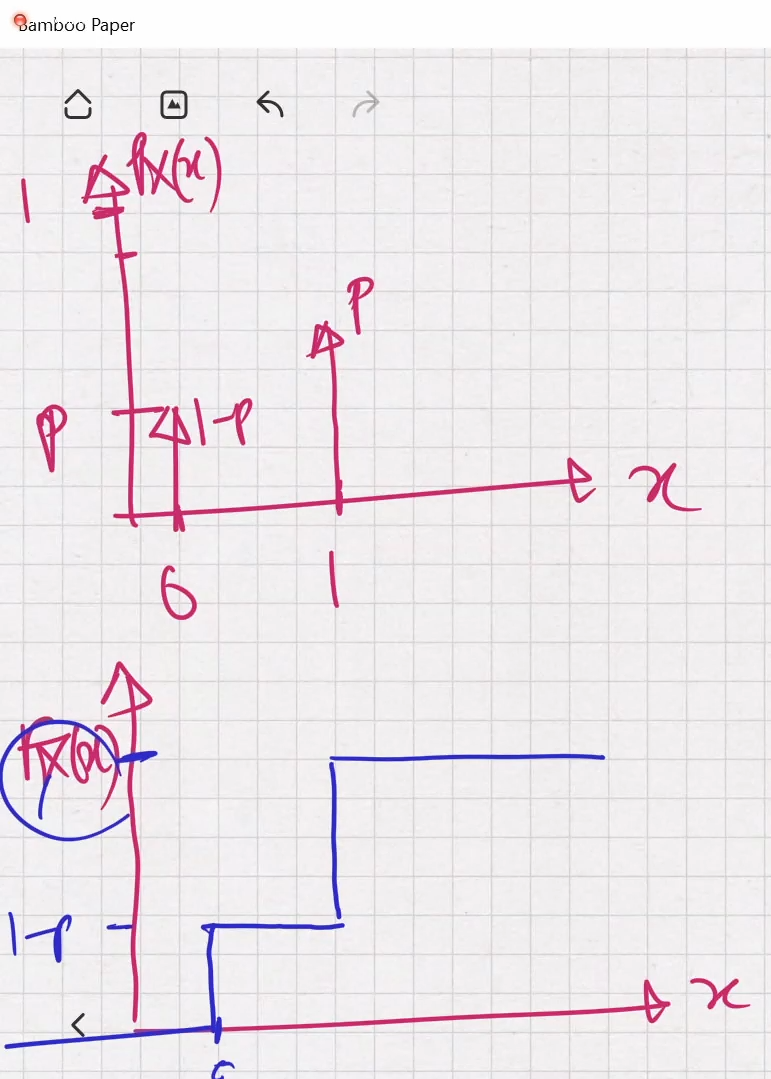 Bamboo Paper
1
PX(x)
P
P
1-P
x
0
1
FX(x)
1-P
x